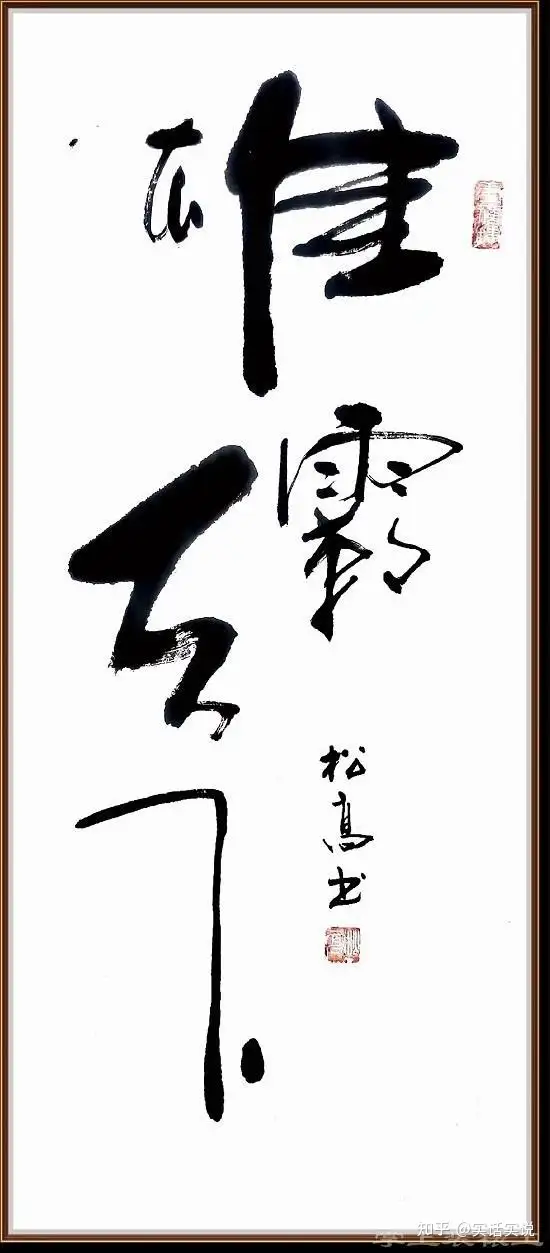 雄霸
天下
松高书
知乎 @实话实说